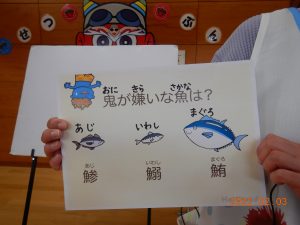 せつ ぶん
おに きら さかな
鬼が嫌いな魚は?
あじ いわし まぐろ
あじ いわし まぐろ
鯵 鰯 鮪